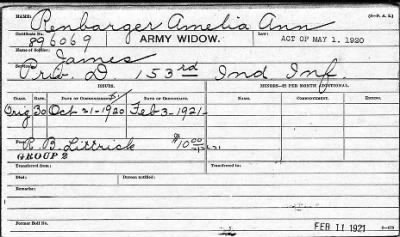 NAME: Renbarger Amelia Ann
Certificate No. 896069 ARMY WIDOW. Law: ACT OF MAY 1, 1920
Name of Soldier: James
Service: Priv. D 153rd Ind Inf.
ISSUES. MINORS—$2 PER MONTH ADDITIONAL.
CLASS. RATE. DATE OF COMMENCEMENT. DATE OF CERTIFICATE. NAME. COMMENCEMENT. ENDING.
Orig 30 Oct 21-1920 Feb 3-1921
R. B. Littrick $10.00
GROUP 2
Transferred from: Transferred to:
Died: Bureau notified:
Remarks:
Former Roll No. FEB 11 1921